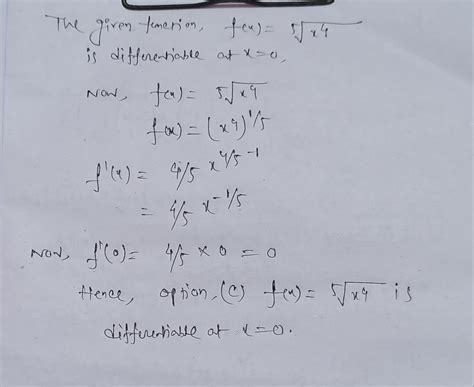 The given function, f(x) = ⁵√x⁴
is differentiable at x=0,
Now, f(x) = ⁵√x⁴
f(x) = (x⁴)^1/5
f'(x) = 4/5 x^4/5-1
= 4/5 x^-1/5
Now, f'(0) = 4/5 × 0 = 0
Hence, option, (C) f(x) = ⁵√x⁴ is
differentiable at x=0.